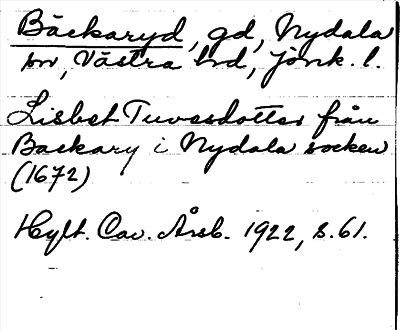 Bäckaryd, gd, Nydala
sn, Västra hd, Jönk. l.
Lisbet Tuvesdotter från
Backary i Nydala socken
(1672)
Hylt. Cav. Årsb. 1922, s. 61.